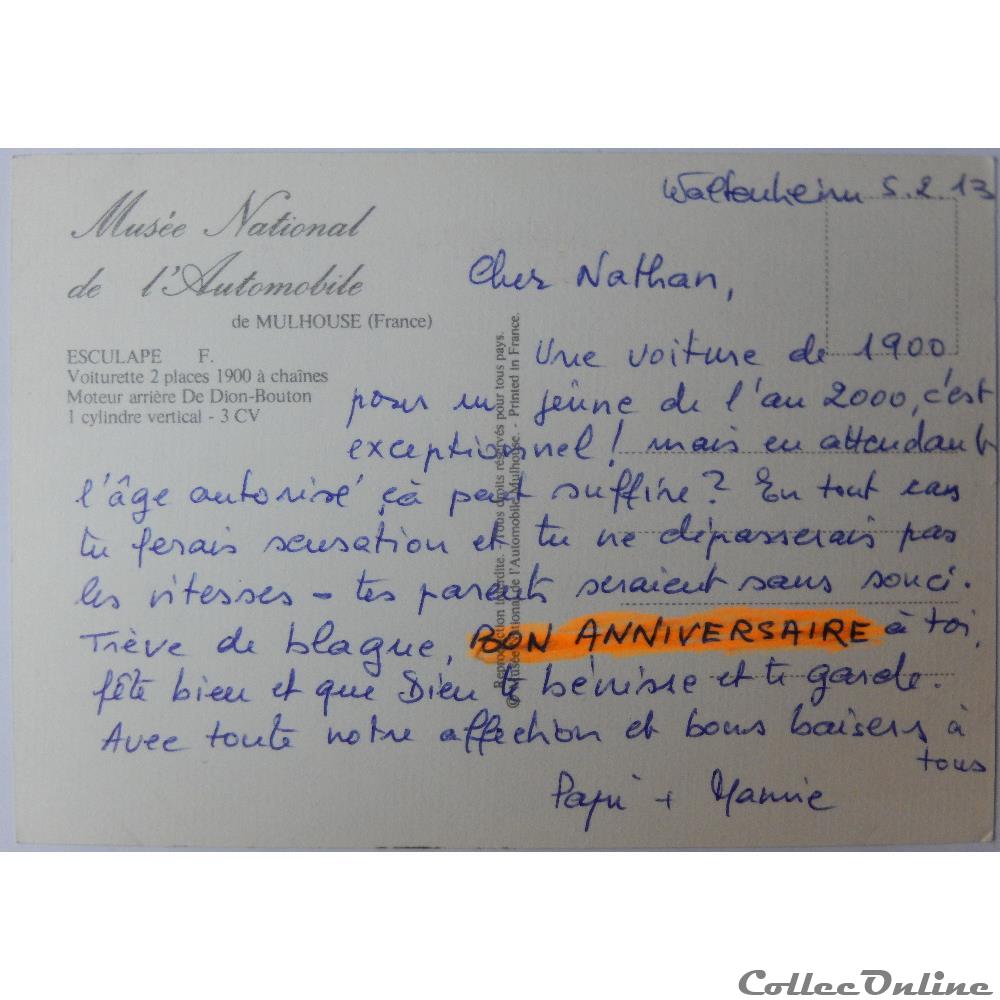 Musée National
de l'Automobile
de MULHOUSE (France)
ESCULAPE F.
Voiturette 2 places 1900 à chaînes
Moteur arrière De Dion-Bouton
1 cylindre vertical - 3 CV
Reproduction interdite. - Tous droits réservés pour tous pays.
© Musée National de l'Automobile Mulhouse. - Printed in France.
Waltenheim 5.2.13
Cher Nathan,
Une voiture de 1900
pour un jeune de l'an 2000, c'est
exceptionnel ! mais en attendant
l'âge autorisé çà peut suffire ? En tout cas
tu ferais sensation et tu ne dépasserais pas
les vitesses - tes parents seraient sans souci.
Trêve de blague, BON ANNIVERSAIRE à toi,
fête bien et que Dieu te bénisse et te garde.
Avec toute notre affection et bons baisers à
tous
Papi + Mamie
CollecOnline